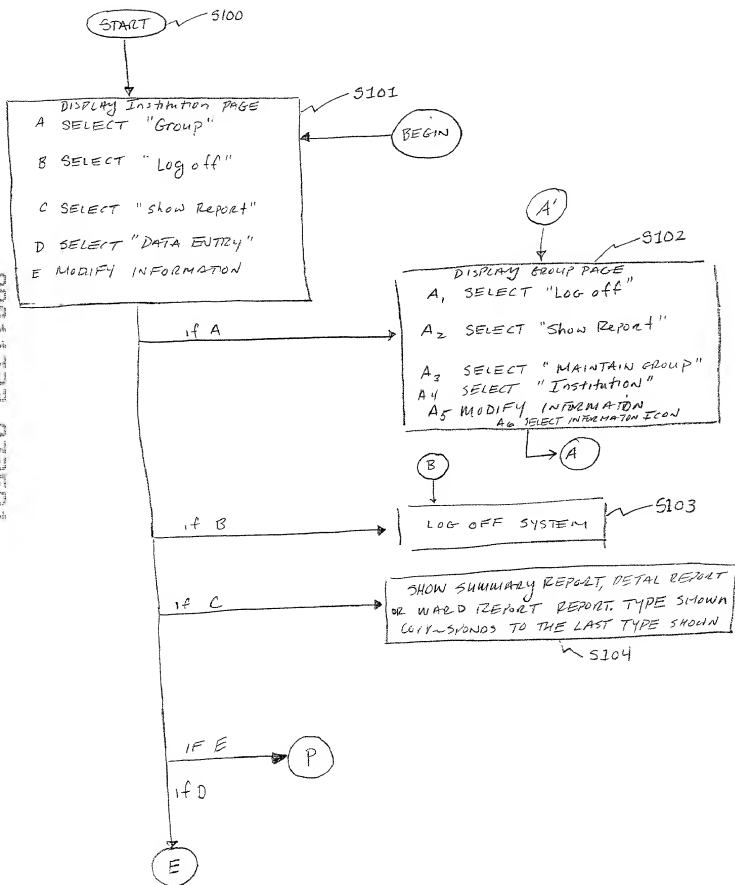 START
S100
S101
DISPLAY Institution PAGE
A SELECT "Group"
B SELECT "Log off"
C SELECT "show Report"
D SELECT "DATA ENTRY"
E MODIFY INFORMATION
BEGIN
A'
S102
DISPLAY GROUP PAGE
A1 SELECT "Log off"
A2 SELECT "Show Report"
A3 SELECT "MAINTAIN GROUP"
A4 SELECT "Institution"
A5 MODIFY INFORMATION
A6 SELECT INFORMATION ICON
if A
A
B
S103
LOG OFF SYSTEM
if B
SHOW SUMMARY REPORT, DETAL REPORT
OR WARD REPORT REPORT. TYPE SHOWN
TO THE LAST TYPE SHOWN
if C
S104
IF E
P
if D
E